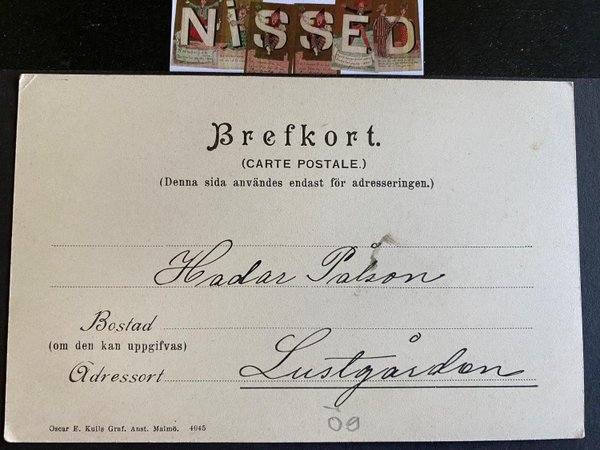 NiSSED
Brefkort.
(CARTE POSTALE.)
(Denna sida användes endast för adresseringen.)
Hadar Pålson
Bostad
(om den kan uppgifvas)
Adressort Lustgården
Oscar E. Kulls Graf. Anst. Malmö. 4945
09